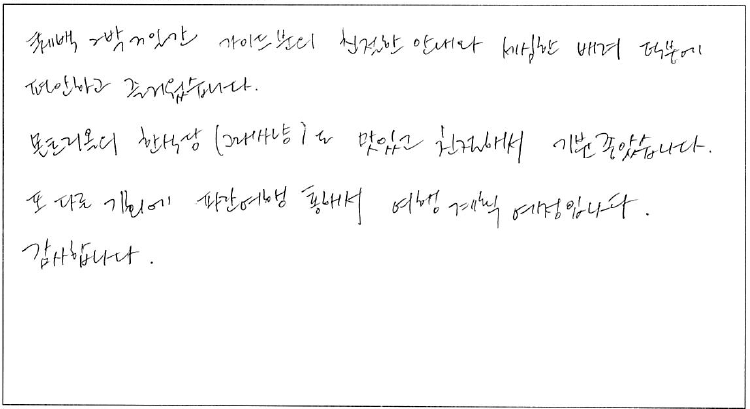 퀘백 2박 3일간 가이드분의 친절한 안내와 세심한 배려 덕분에
편안하고 즐거웠습니다.
몬트리올의 한식당 ( )도 맛있고 친절해서 기분 좋았습니다.
또 다른 기회에 파란여행 통해서 여행 계획 예정입니다.
감사합니다.